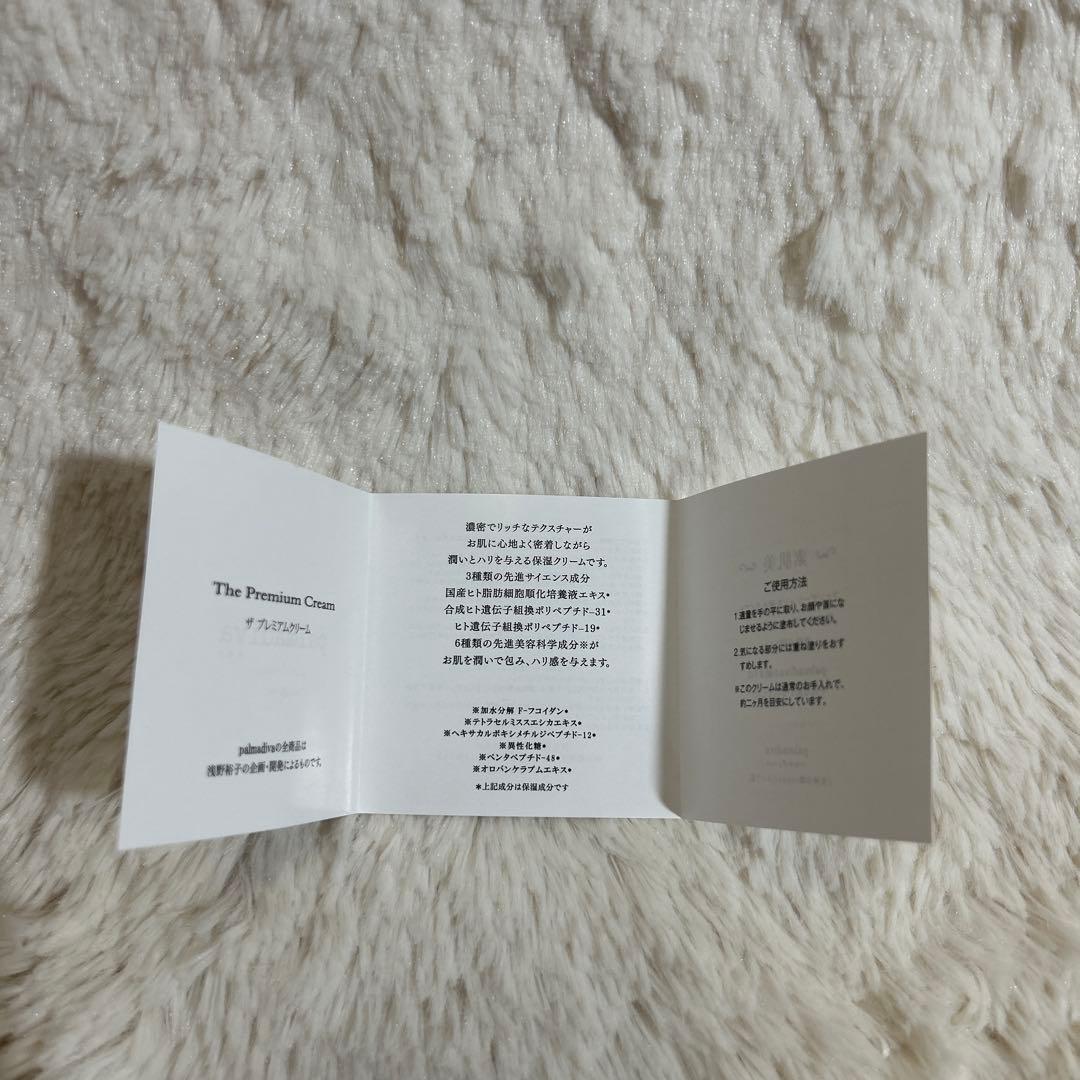 The Premium Cream
ザ プレミアムクリーム
palmadivaの全商品は
浅野裕子の企画・開発によるものです。
濃密でリッチなテクスチャーが
お肌に心地よく密着しながら
潤いとハリを与える保湿クリームです。
3種類の先進サイエンス成分
国産ヒト脂肪細胞順化培養液エキス*
合成ヒト遺伝子組換ポリペプチド-31*
ヒト遺伝子組換ポリペプチド-19*
6種類の先進美容科学成分※が
お肌を潤いで包み、ハリ感を与えます。
※加水分解 F-フコイダン*
※テトラセルミススエシカエキス*
※ヘキサカルボキシメチルジペプチド-12*
※異性化糖*
※ペンタペプチド-48*
※オロバンケラプムエキス*
*上記成分は保湿成分です
ご使用方法
1.適量を手の平に取り、お顔や首にな
じませるように塗布してください。
2.気になる部分には重ね塗りをおす
すめします。
※このクリームは通常のお手入れで、
約二ヶ月を目安にしています。